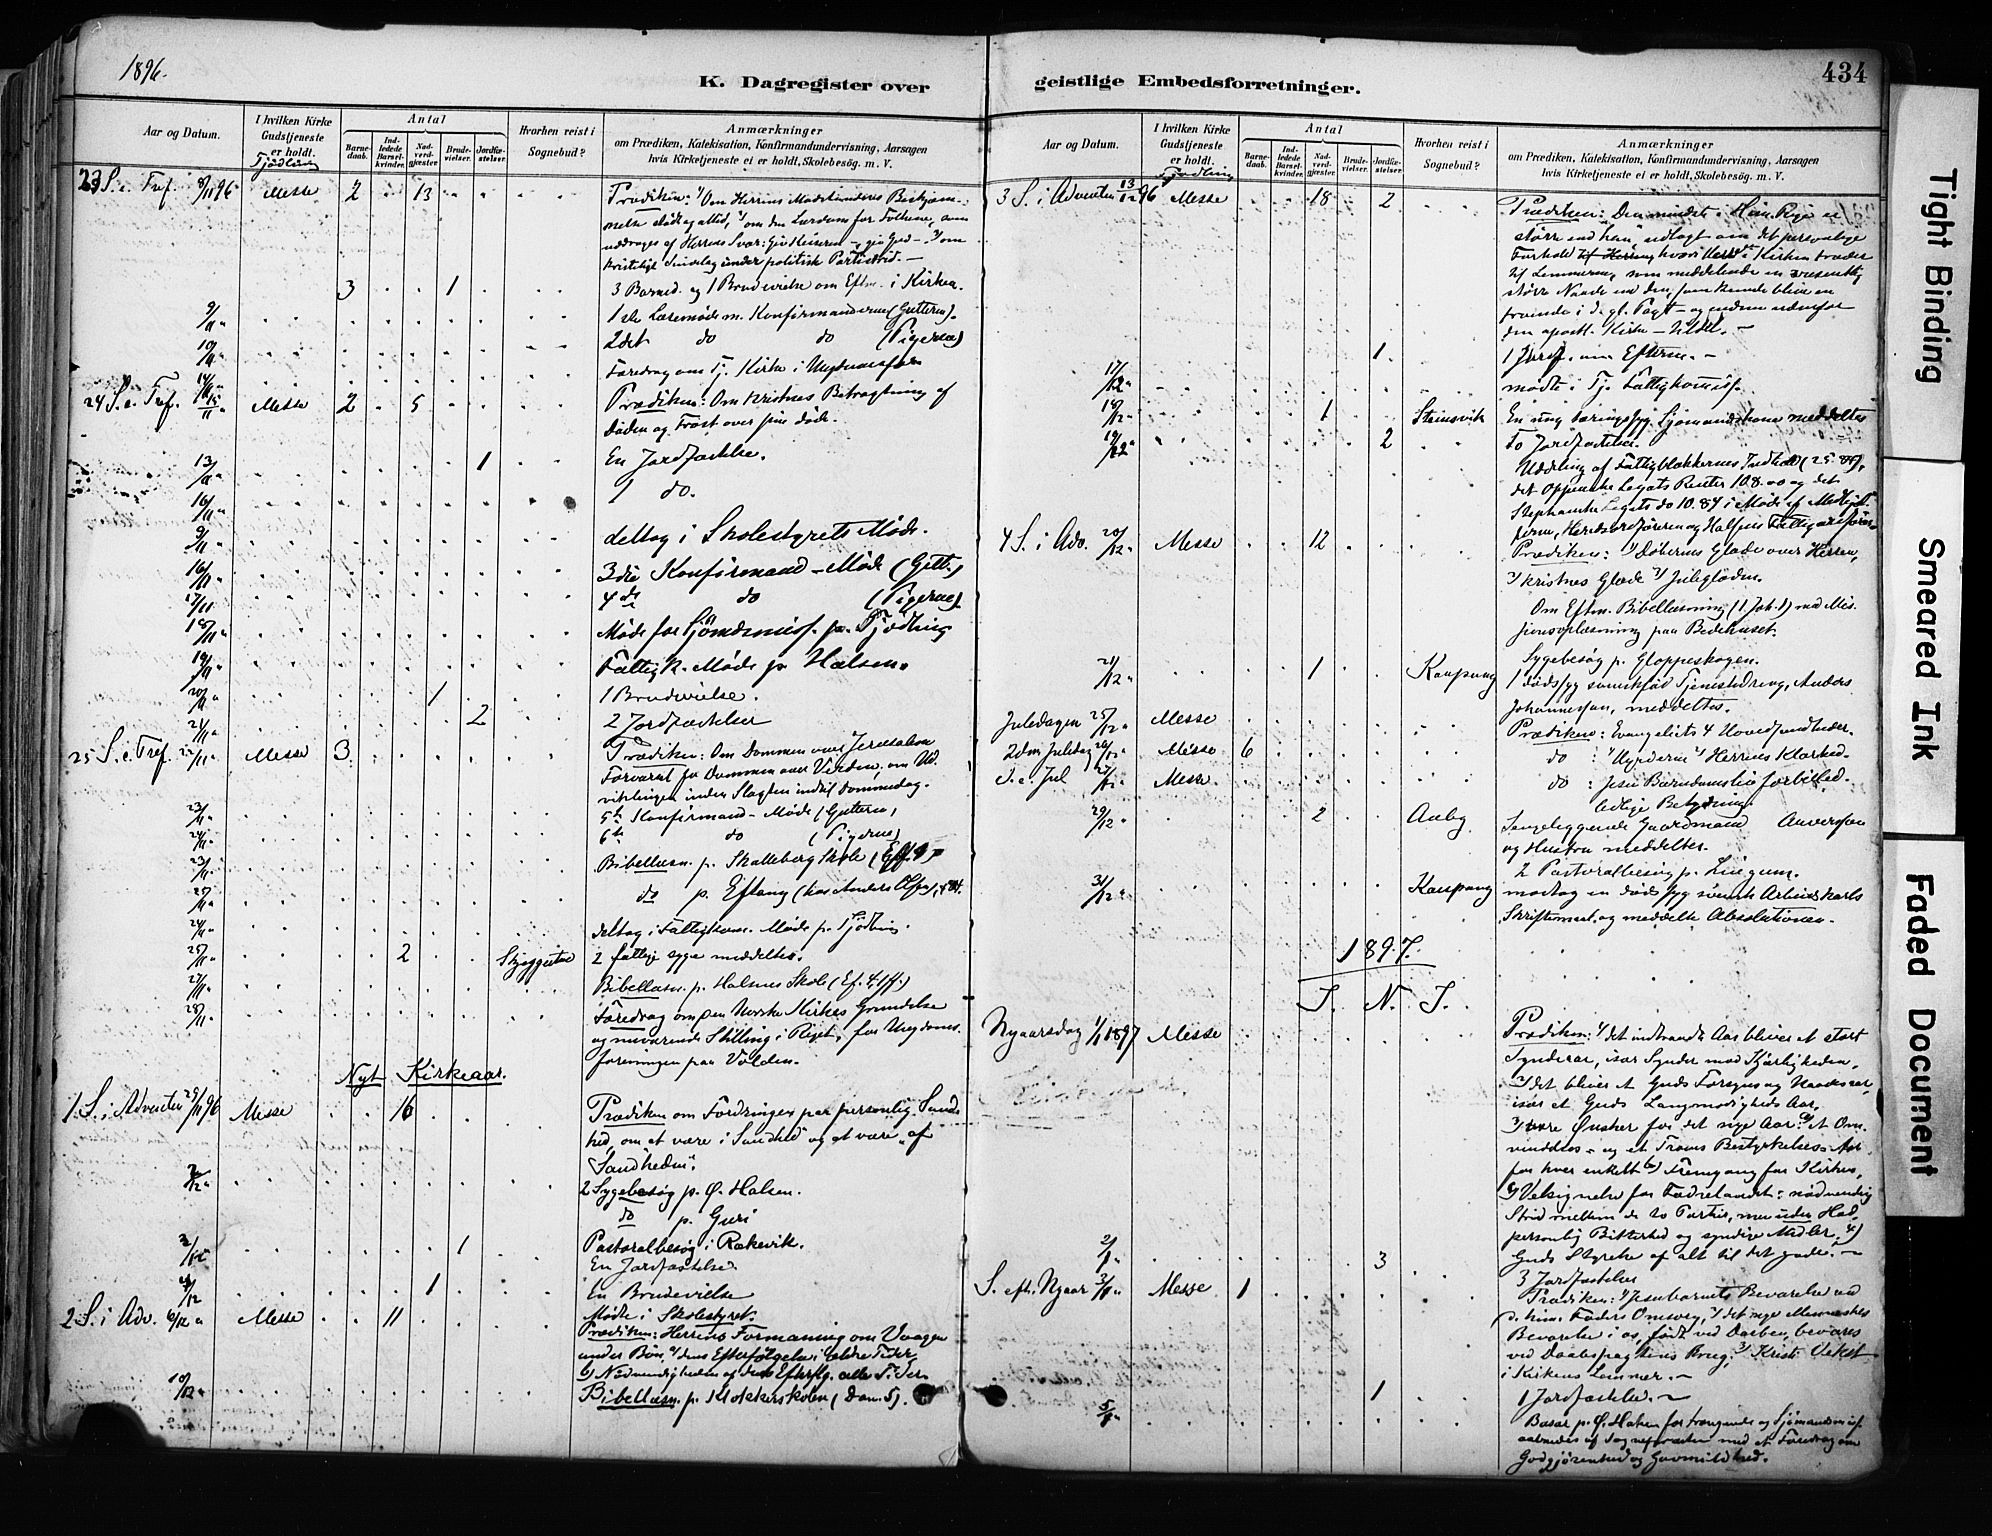 1896.
K. Dagregister over geistlige Embedsforretninger.
434
Aar og Datum.
I hvilken Kirke Gudstjeneste er holdt.
Tjødling
Antal
Barnedaab.
Indledede Barselkvinder.
Nadverdgjester.
Brudevielser.
Jordfæstelser.
Hvorhen reist i Sognebud?
Anmærkninger
om Prædiken, Katekisation, Konfirmandundervisning, Aarsagen
hvis Kirketjeneste ei er holdt, Skolebesøg. m. V.
23 S. e. Tref. 8/11 96 Messe 2 13 Prædiken: 1) Om Herrens Modstanderes Beskjæm-
melse dødt og altid, 2) om den Lærdom for Folkene, som
uddrages af Herrens Svar: Giv Keiseren –, giv Gud –. 3) om
kristeligt Sindelag under politisk Partistrid. –
3 1 3 Barned. og 1 Brudevielse om Eftm. i Kirken.
9/11 1ste Læremøde m. Konfirmanderne (Gutterne).
10/11 2det do do (Pigerne)
14/11 Foredrag om Tj. Kirke i Ungdomsfor
24 S. e. Tref. 15/11 Messe 2 5 Prædiken: Om Kristnes Betragtning af
Døden og Trøst over sine døde.
13/11 1 En Jordfæstelse.
16/11 1 do.
9/11 deltog i Skolestyrets Møde.
16/11 3die Konfirmand-Møde (Gutt.)
17/11 4de do (Pigerne)
18/11 Møde for Sjømdsmiss. p. Tjødling
19/11 Fattigk. Møde p. Halsen.
20/11 1 1 Brudevielse.
21/11 2 2 Jordfæstelser
25 S. e. Tref. 22/11 Messe 3 Prædiken: Om Dommen over Jerusalem
Forvarsel for Dommen over Verden, om Ud-
viklingen inden Slægten indtil Dommedag.
23/11 5te Konfirmand-Møde (Gutterne)
24/11 6te do (Pigerne)
23/11 Bibellæsn. p. Skalleberg Skole
25/11 do p. Eftang (hos Anders
24/11 deltog i Fattigkom. Møde p. Tjødling.
25/11 2 Skjeggestad 2 fattige syge meddeltes.
27/11 Bibellæsn. p. Halsens Skole (Ef. 4,1ff.)
28/11 Foredrag om den Norske Kirkes Grundelse
og nuværende Stilling i Riget, for Ungdoms-
foreningen paa Volden.
Nyt Kirkeaar.
1. S. i Adventen 29/11 96 Messe 16 Prædiken om Fordringen paa personlig Sand-
hed, om at være i Sandhed og at være „af
Sandheden".
2/12 2 Sygebesøg p. Ø. Halsen.
do p. Guri
Pastoralbesøg i Rækevik.
3/12 1 En Jordfæstelse.
1 En Brudevielse
Møde i Skolestyret.
2 S. i Adv. 6/12 Messe 11 Prædiken: Herrens Formaning om Vaagen
under Bøn, a) dens Efterfølgelse i ældre Tider,
b) Nødvendigheden af dens Efterflg. alle Tider.
10/12 Bibellæsn. p. Klokkerskolen (Dan. 5).
Aar og Datum.
I hvilken Kirke Gudstjeneste er holdt.
Tjødling
Antal
Barnedaab.
Indledede Barselkvinder.
Nadverdgjester.
Brudevielser.
Jordfæstelser.
Hvorhen reist i Sognebud?
Anmærkninger
om Prædiken, Katekisation, Konfirmandundervisning, Aarsagen
hvis Kirketjeneste ei er holdt, Skolebesøg. m. V.
3 S. i Adventen 13/12 96 Messe 18 2 Prædiken: Den mindste i Him. Rige er
større end han, udlagt om det personlige
Forhold til Herren, hvori Herr. Kirken træder
til Lemmerne, som meddelende en væsentlig
større Naade end den, som kunde blive en
troende i d. gl. Pagt – og endnu udenfor
den apostl. Kirke – tildel. –
1 1 Jordf. om Efterm. –
17/12 mødte i Tj. Fattigkomiss.
18/12 1 Steinsvik En ung tæringssyg Sjømandskone meddeltes
19/12 2 To Jordfæstelser.
Uddeling af Fattigblokkernes Indhold (25.
det Oppenske Legats Renter 108.00 og det
Stephanske Legats do 10.84 i Møde af Medhjæl-
perne, Herredsordføreren og Halsens Fattigordfører
4 S. i Adv. 20/12 Messe 12 Prædiken: 1) Døberens Glæde over Herren,
2) Kristnes Glæde 3) Juleglæden.
Om Eftm. Bibellæsning (1 Joh. 1) med Mis-
sionsoplæsning paa Bedehuset.
Sygebesøg p. Gloppeskogen.
21/12 1 Kaupang 1 dødssyg svenskfød Tjenestedreng, Anders
Johannessen, meddeltes.
Juledagen 25/12 Messe Prædiken: Evangeliets 4 Hovedsandheder.
2den Juledag 26/12 Messe 6 do : Hyrderne i Herrens Klarhed.
S. e. Jul 27/12 Messe do : Jesu Barndomsliv forbilled-
ledlige Betydning.
29/12 2 Aaby Sengeliggende Gaardmand Anversen
og Hustru meddeltes.
2 Pastoralbesøg p. Lingum.
31/12 Kaupang modtog en dødssyg svensk Arbeidskarls
Skriftemaal, og meddelte Absolutionen.
1897.
I. N. J.
Nyaarsdag 1/1 1897 Messe Prædiken: 1) det indtraadte Aar bliver et stort
Synderaar, især Synder mod Kjærligheden,
2) det bliver et Guds Forsyns og Naadesaar,
især et Guds Langmodigheds Aar.
3) vore Ønsker for det nye Aar: a) et Om-
vendelses- og et Troens Bestyrkelses-Aar
for hver enkelt b) Fremgang for Kirken,
c) Velsignelse for Fædrelandet: nødvendig
Strid mellem de to Partier, men uden Had,
personlig Bitterhed og syndige Midler. 4)
Guds Styrelse af alt til det gode. –
2/1 3 3 Jordfæstelser
S. eft. Nyaar 3/1 Messe 1 Prædiken: 1) Jesubarnets Bevarelse ved
s. him. Faders Omsorg, 2) det nye Menneskes
Bevarelse i os, født ved Daaben, bevares
ved Daabspagtens Brug, 3) Kristi Vekst
i Kirkens Lemmer. –
1 1 Jordfæstelse. –
5/1 Basar p. Ø. Halsen for trængende og Sjømandsmiss.
aabnedes af Sognepræsten med et Foredrag om
Godgjørenhed og Gavmildhed.
Tight Binding
Smeared Ink
Faded Document